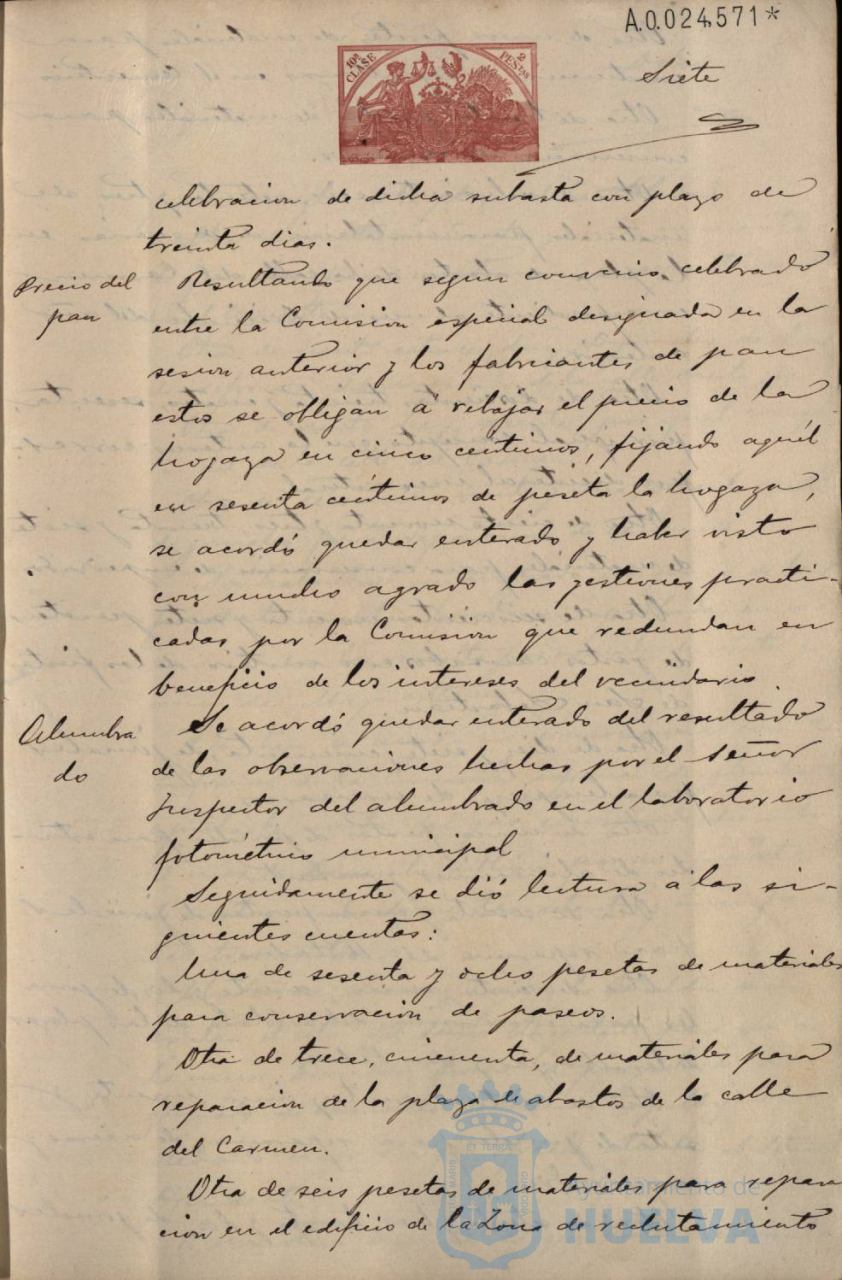 A.0.024.571*
10ª CLASE
2 PESETAS
Siete
celebracion de dicha subasta con plazo de
treinta dias.
Precio del
pan
Resultando que segun convenio celebrado
entre la Comision especial designada en la
sesion anterior y los fabricantes de pan
estos se obligan á rebajar el precio de la
hogaza en cinco centimos, fijando aquél
en sesenta céntimos de peseta la hogaza,
se acordó quedar enterado y haber visto
con mucho agrado las gestiones practi-
cadas por la Comisión que redundan en
beneficio de los intereses del vecindario.
Alumbra
do
Se acordó quedar enterado del resultado
de las observaciones hechas por el Señor
Inspector del alumbrado en el laboratorio
fotométrico municipal
Seguidamente se dió lectura á las si-
guientes cuentas:
Una de sesenta y ocho pesetas de materiales
para conservacion de paseos.
Otra de trece, cincuenta, de materiales para
reparacion de la plaza de abastos de la calle
del Carmen.
Otra de seis pesetas de materiales para repara
cion en el edificio de la Zona de reclutamiento
Ayuntamiento de
HUELVA